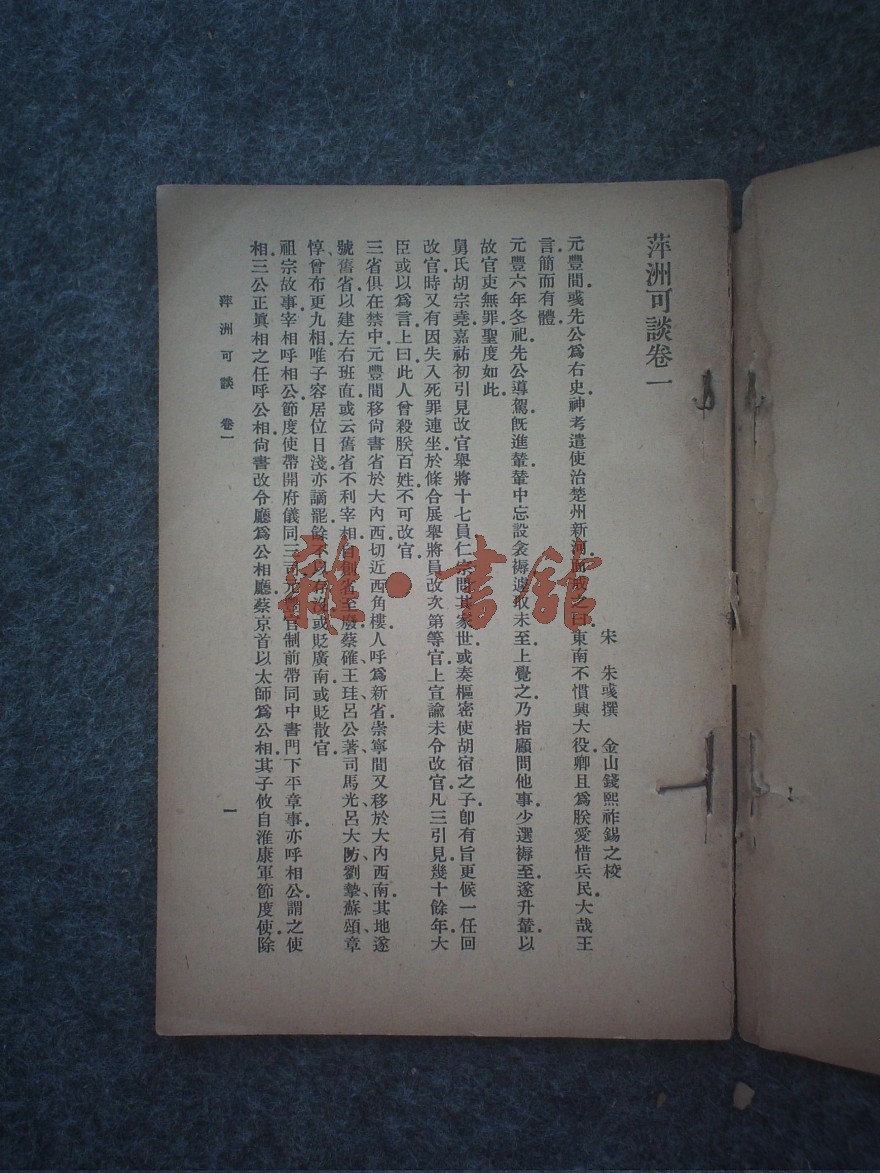 萍洲可談卷一
宋　朱彧撰　金山錢熙祚錫之校
元豐間彧先公爲右史神考遣使治楚州新河面戒之曰東南不慣興大役卿且爲朕愛惜兵民大哉王
言簡而有體
元豐六年冬祀先公導駕旣進輦輦中忘設衾褥遽取未至上覺之乃指顧問他事少選褥至遂升輦以
故官吏無罪聖度如此
舅氏胡宗堯嘉祐初引見改官舉將十七員仁宗問其家世或奏樞密使胡宿之子卽有旨更候一任回
改官時又有因失入死罪連坐於條合展舉將員改次第等官上宣諭未令改官凡三引見幾十餘年大
臣或以爲言上曰此人曾殺朕百姓不可改官
三省俱在禁中元豐間移尙書省於大內西切近西角樓人呼爲新省崇寧間又移於大內西南其地遂
號舊省以建左右班直或云舊省不利宰相自創省至廢蔡確、王珪、呂公著、司馬光、呂大防、劉摯、蘇頌、章
惇、曾布更九相唯子容居位日淺亦謫罷餘不以存沒或貶廣南或貶散官
祖宗故事宰相呼相公節度使帶開府儀同三司元豐官制前帶同中書門下平章事亦呼相公謂之使
相三公正眞相之任呼公相尙書改令廳爲公相廳蔡京首以太師爲公相其子攸自淮康軍節度使除
萍洲可談　卷一
一
雜·書館